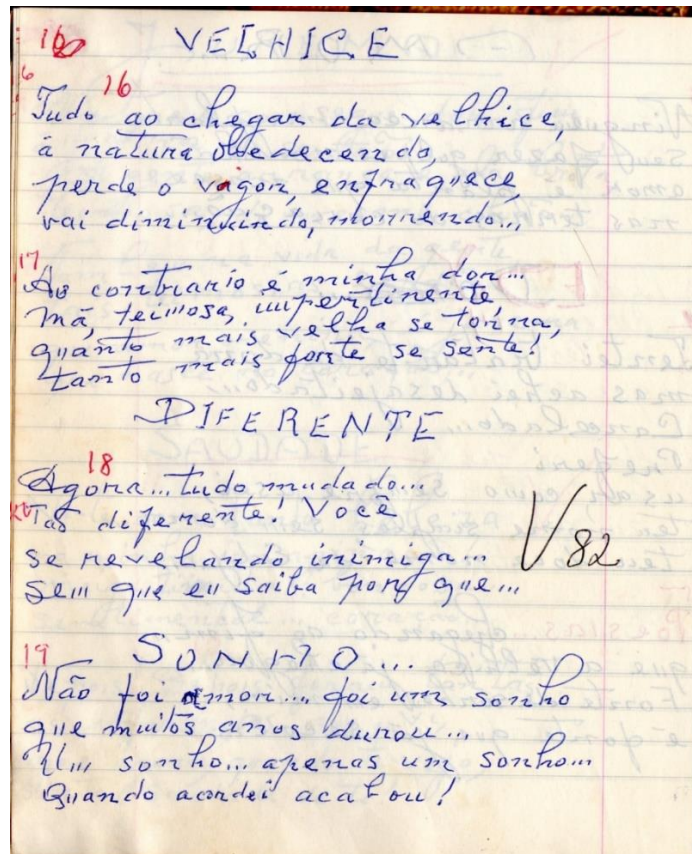 16 VELHICE
16
Tudo ao chegar da velhice,
à natura obedecendo,
perde o vigor, enfraquece,
vai diminuindo, morrendo...
17
Ao contrario é minha dor...
má, teimosa, impertinente,
quanto mais velha se torna,
tanto mais forte se sente!
DIFERENTE
18
Agora... tudo mudado...
Tão diferente! Você
se revelando inimiga...
sem que eu saiba por que...
V82
19 SONHO...
Não foi amor... foi um sonho
que muitos anos durou...
Um sonho... apenas um sonho...
Quando acordei acabou!